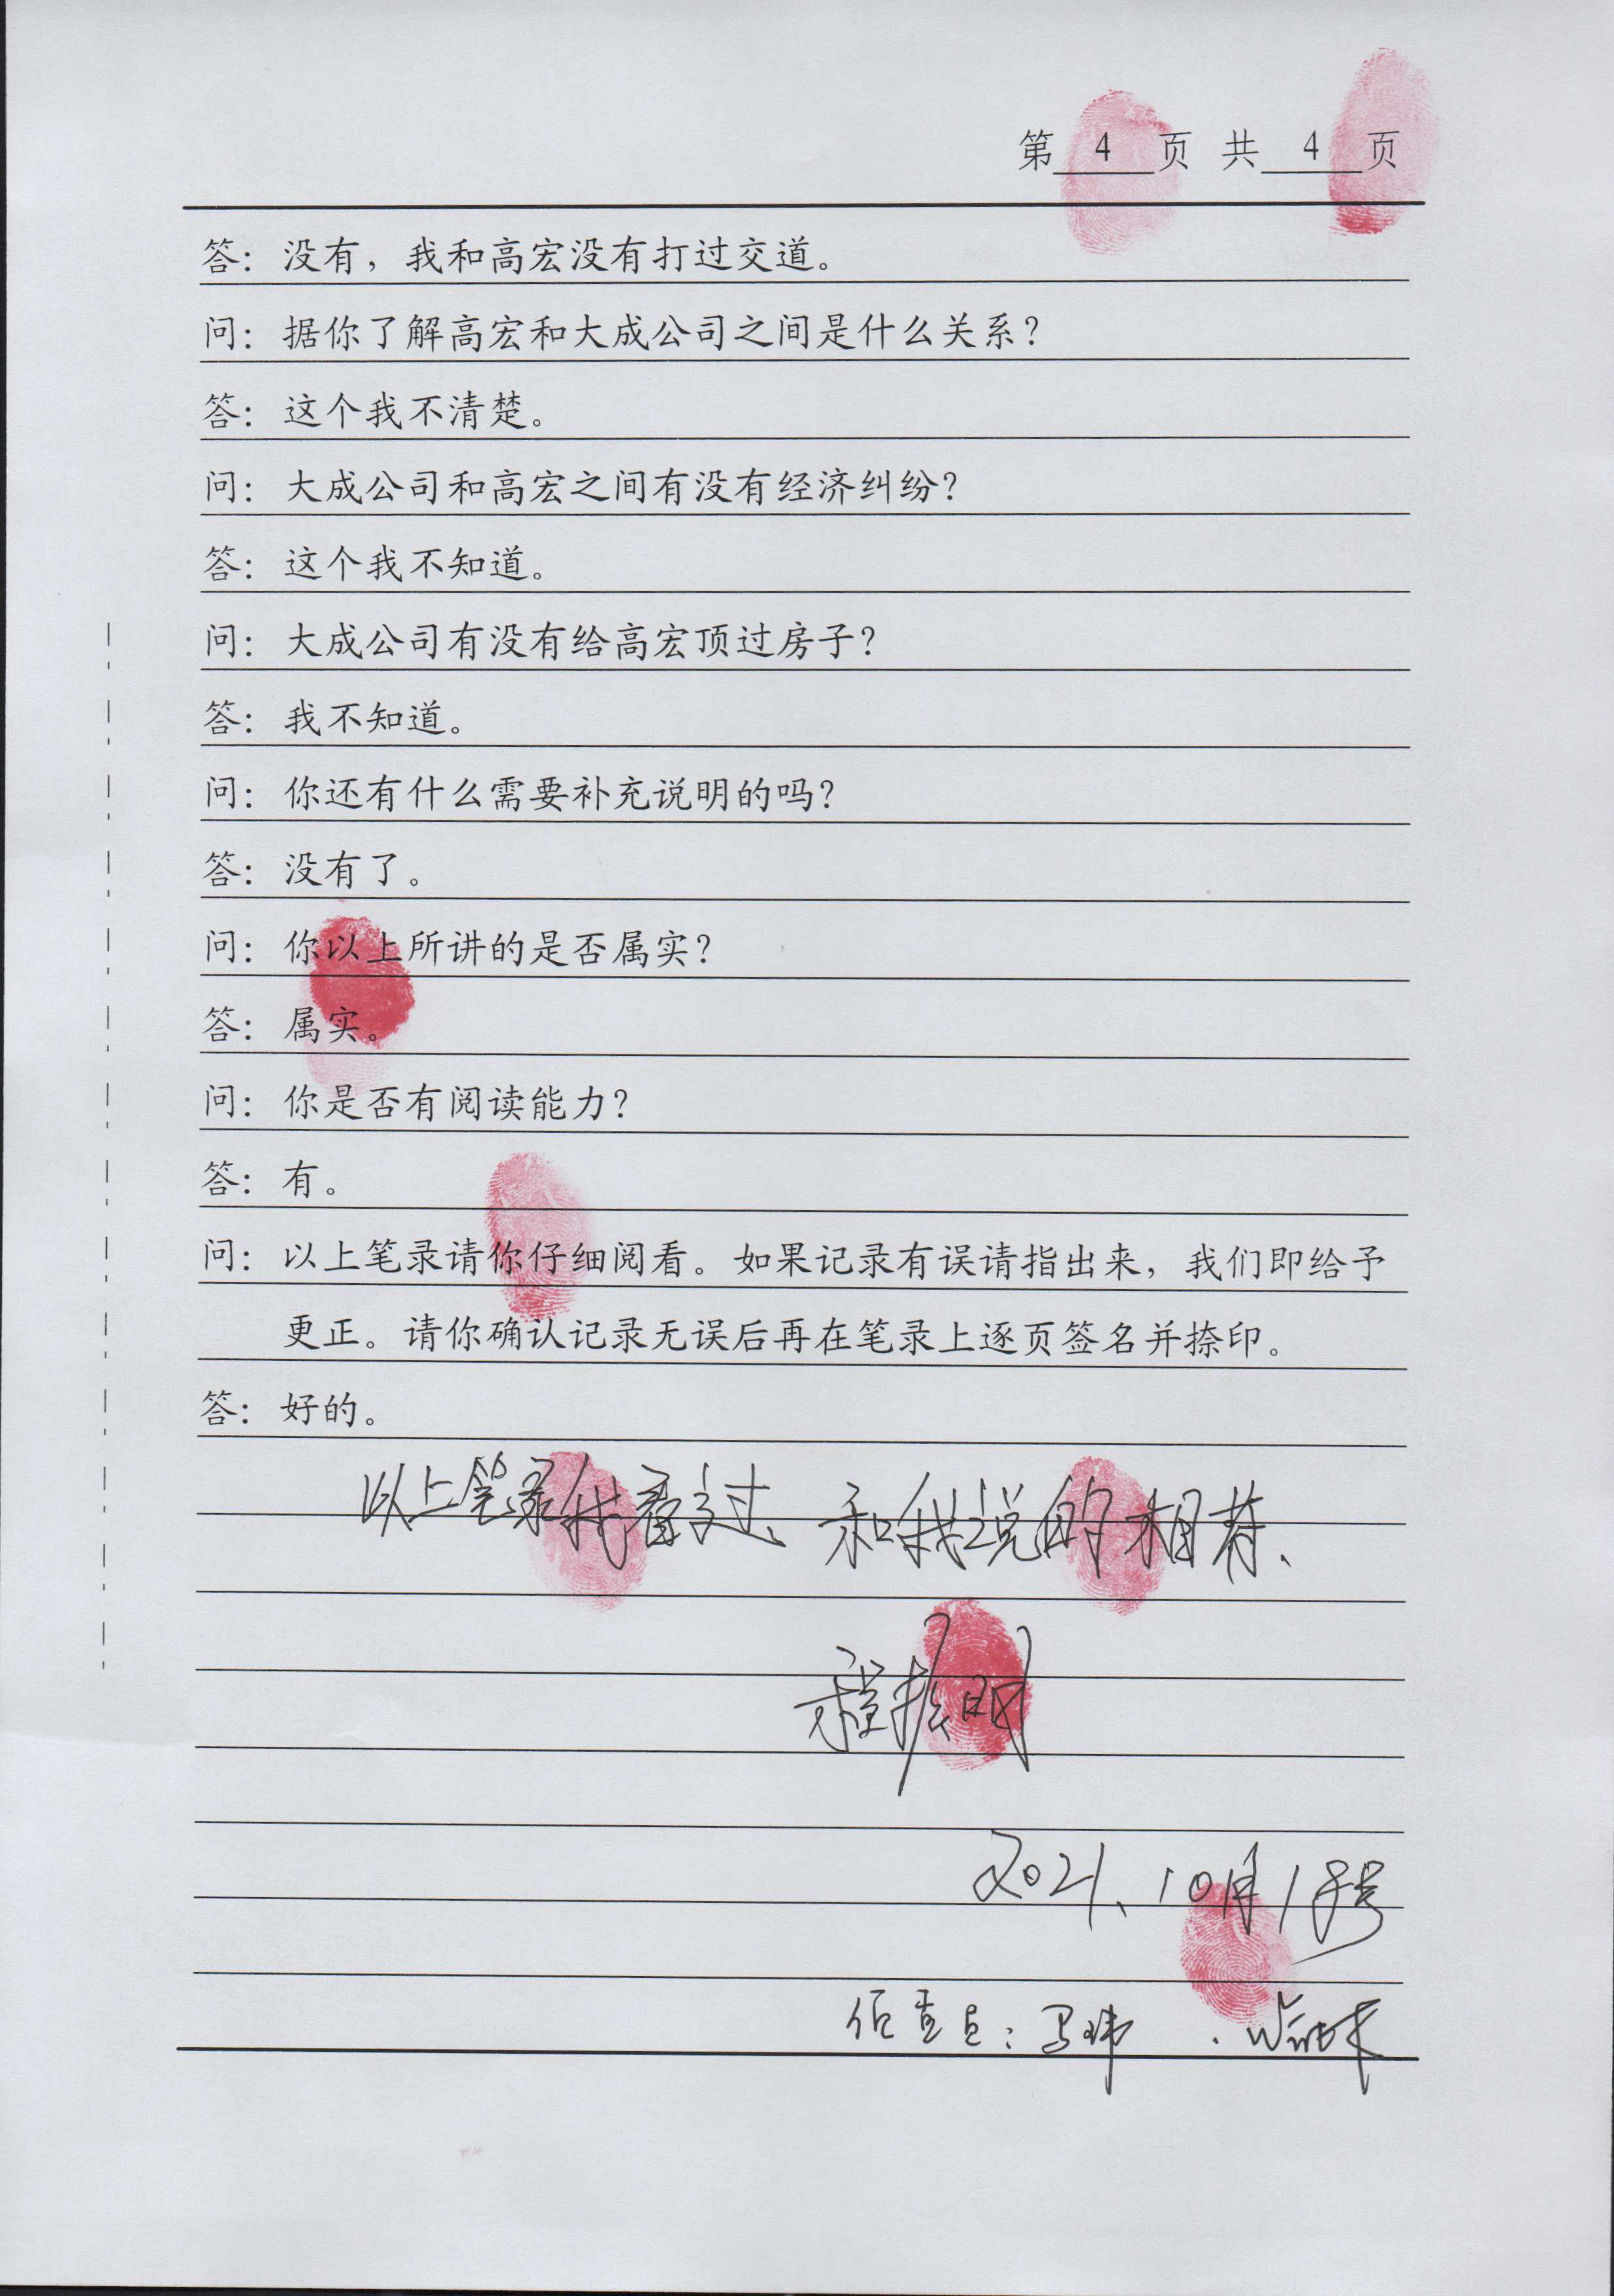 第 4 页 共 4 页
答：没有，我和高宏没有打过交道。
问：据你了解高宏和大成公司之间是什么关系？
答：这个我不清楚。
问：大成公司和高宏之间有没有经济纠纷？
答：这个我不知道。
问：大成公司有没有给高宏顶过房子？
答：我不知道。
问：你还有什么需要补充说明的吗？
答：没有了。
问：你以上所讲的是否属实？
答：属实。
问：你是否有阅读能力？
答：有。
问：以上笔录请你仔细阅看。如果记录有误请指出来，我们即给予
更正。请你确认记录无误后再在笔录上逐页签名并捺印。
答：好的。
以上笔录我看过、和我说的相符、
程振明
2021、10月18号
侦查员：马玮